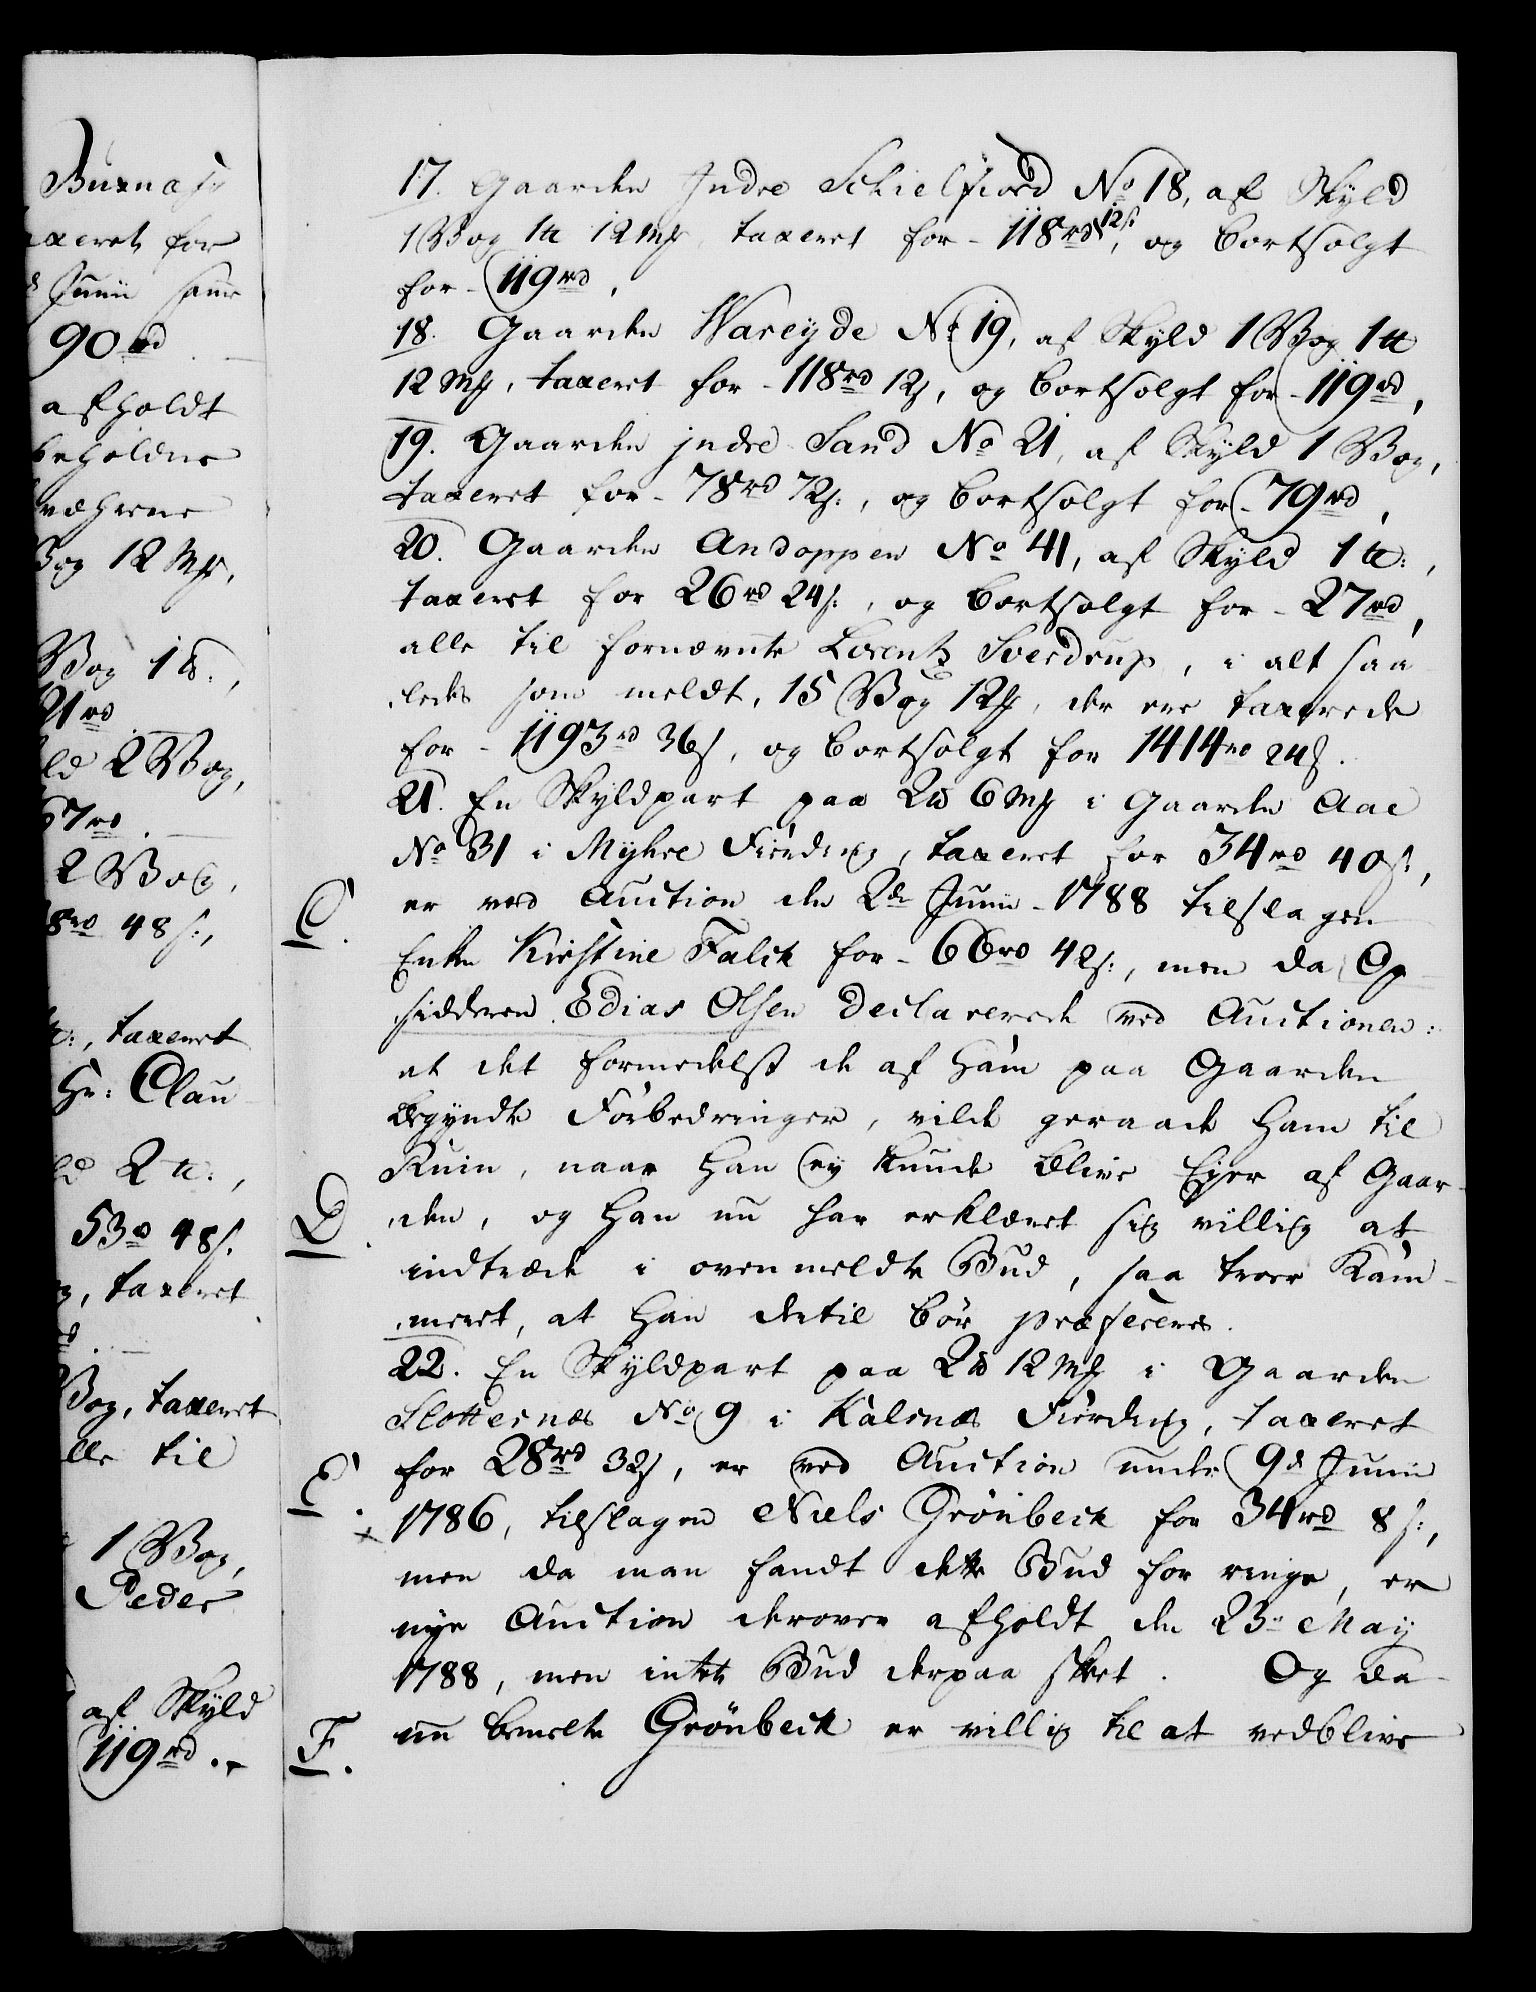 Buxnæs
taxeret for
Junii samme
90 rd
afholdt
beholdne
12 Mk.
Vog 1 ℔.,
21 rd
2 Vog,
67 rd.
2 Vog,
48 s.,
taxeret
Hr: Clau
2 ℔.,
53 rd 48 s.
taxeret
Vog, taxeret
alle til
1 Vog,
Peder
af Skyld
119 rd.
17. Gaarden Indre Schielfiord No 18, af Skyld
1 Vog 1 ℔ 12 Mk, taxeret for - 118 rd 12 s., og bortsolgt
for - 119 rd,
18. Gaarden Wareyde No 19, af Skyld 1 Vog 1 ℔
12 Mk, taxeret for - 118 rd 12 s, og bortsolgt for - 119 rd,
19. Gaarden jndre Sand No 21, af Skyld 1 Vog,
taxeret for - 78 rd 72 s:, og bortsolgt for - 79 rd,
20. Gaarden Andoppen No 41, af Skyld 1 ℔:,
taxeret for 26 rd 24 s:, og bortsolgt for - 27 rd,
alle til fornævnte Lorentz Sverdrup, i alt saa
ledes som meldt, 15 Vog 12 Mk, der ere taxerede
for - 1193 rd 36 s, og bortsolgt for 1414 rd 24 s.
21. En Skyldpart paa 2 ℔ 6 Mk i Gaarden Aae
No 31 i Myhre Fierding, taxeret for 34 rd 40 s:,
C. er ved Auction den 2de Junii - 1788 tilslagen
Enken Kirstine Falck for - 66 rd 42 s:, men da Op
sidderen Edias Olsen declarerede ved Auctionen:
at det formedelst de af ham paa Gaarden
begyndte Forbedringer, vilde geraade ham til
Ruin, naar han ey kunde blive Ejer af Gaar-
D. den, og han nu har erklæret sig villig at
indtræde i ovenmeldte Bud, saa troer Kam-
meret, at han dertil bør præfereres.
22. En Skyldpart paa 2 ℔ 12 Mk i Gaarden
Slottesnæs No 9 i Kalsnæs Fierding, taxeret
E. for 28 rd 32 s, er ved Auction under 9de Junii
x 1786, tilslagen Niels Grönbeck for 34 rd 8 s:,
men da man fandt dette Bud for ringe, er
nye Auction derover afholdt den 23de May
1788, men intet Bud derpaa skeet. Og da
F. nu bemelte Grönbeck er villig til at vedblive